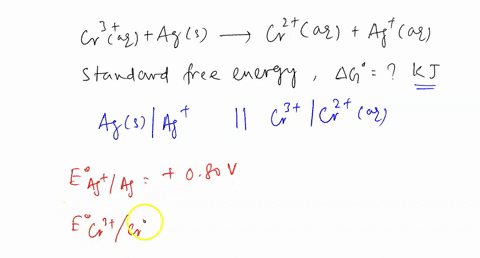 Cr³⁺(aq) + Ag(s) ⟶ Cr²⁺(aq) + Ag⁺(aq)
Standard free energy, ΔG° = ? KJ
Ag(s) | Ag⁺ || Cr³⁺ / Cr²⁺ (aq)
E°Ag⁺/Ag = + 0.80 V
E°Cr³⁺/Cr